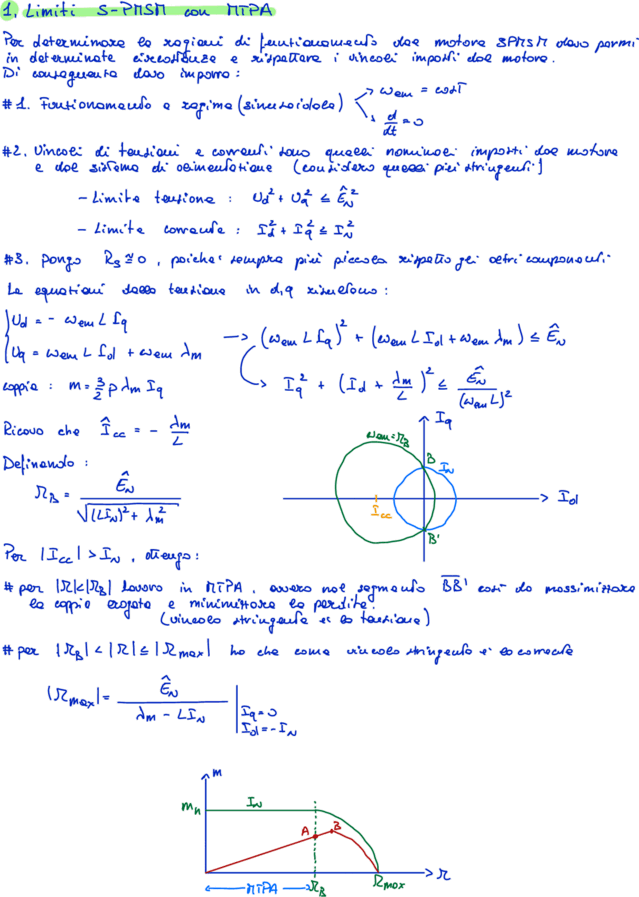 1. Limiti S-PMSM con MTPA
Per determinare le regioni di funzionamento del motore SPMSM devo pormi
in determinate circostanze e rispettare i vincoli imposti dal motore.
Di conseguenza devo imporre:
#1. Funzionamento a regime (sinusoidale) → ωem = cost
→ d/dt = 0
#2. Vincoli di tensioni e correnti sono quelli nominali imposti dal motore
e dal sistema di alimentazione (considero quelli più stringenti)
- Limite tensione : Ud² + Uq² ≤ ÊN²
- Limite corrente : Id² + Iq² ≤ IN²
#3. pongo Rs ≅ 0, poiché sempre più piccola rispetto gli altri componenti
Le equazioni della tensione in d,q risultano :
Ud = - ωem L Iq
Uq = ωem L Id + ωem λm
→ (ωem L Iq)² + (ωem L Id + ωem λm) ≤ ÊN
coppia : m = 3/2 p λm Iq
→ Iq² + (Id + λm/L)² ≤ ÊN/(ωem L)²
Ricavo che Îcc = - λm/L
Definendo :
ΩB = ÊN/√((LIN)² + λm²)
Iq
ωem = ΩB
B
IN
Icc
Id
B'
Per |Icc| > IN, ottengo :
# per |Ω|<|ΩB| lavoro in MTPA, ovvero nel segmento BB' così da massimizzare
la coppia erogata e minimizzare le perdite.
(vincolo stringente è la tensione)
# per |ΩB| < |Ω| ≤ |Ωmax| ho che come vincolo stringente è la corrente
|Ωmax| = ÊN/(λm - LIN) | Iq=0
Id=-IN
m
mn
IN
A
B
MTPA
ΩB
Ωmax
Ω